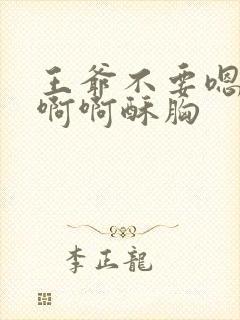 王爷不要嗯
啊啊酥胸
李正龍